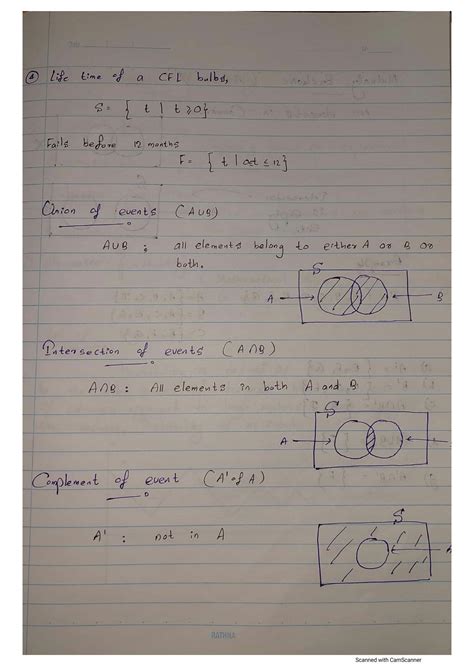 ① Life time of a CFL bulbs,
S = { t | t ≥ 0}
Fails before 12 months
F = { t | 0≤t ≤ 12}
Union of events (A∪B)
A∪B : all elements belong to either A or B or
both.
S
A
B
Intersection of events (A∩B)
A∩B : All elements in both A and B
S
A
Complement of event (A' of A)
A' : not in A
S
A
RATHNA
Scanned with CamScanner